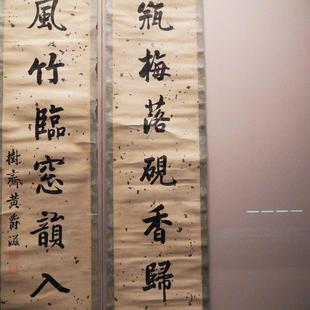 瓶梅落硯香歸
風竹臨窓韻入
樹齋黃爵滋